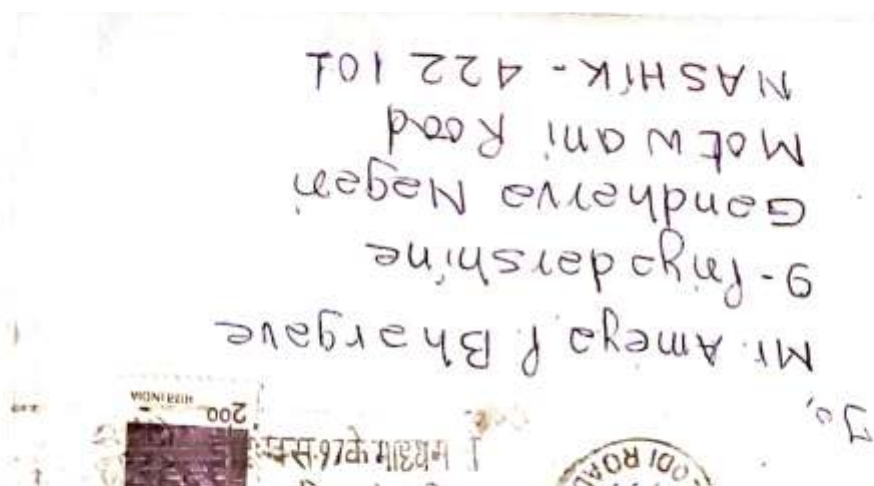 To,
Mr. Ameya P. Bhargave
9-Priyadarshine
Gandharva Nagari
Motwani Road
NASHIK - 422 101
2.00
भारत INDIA
ODI ROAD